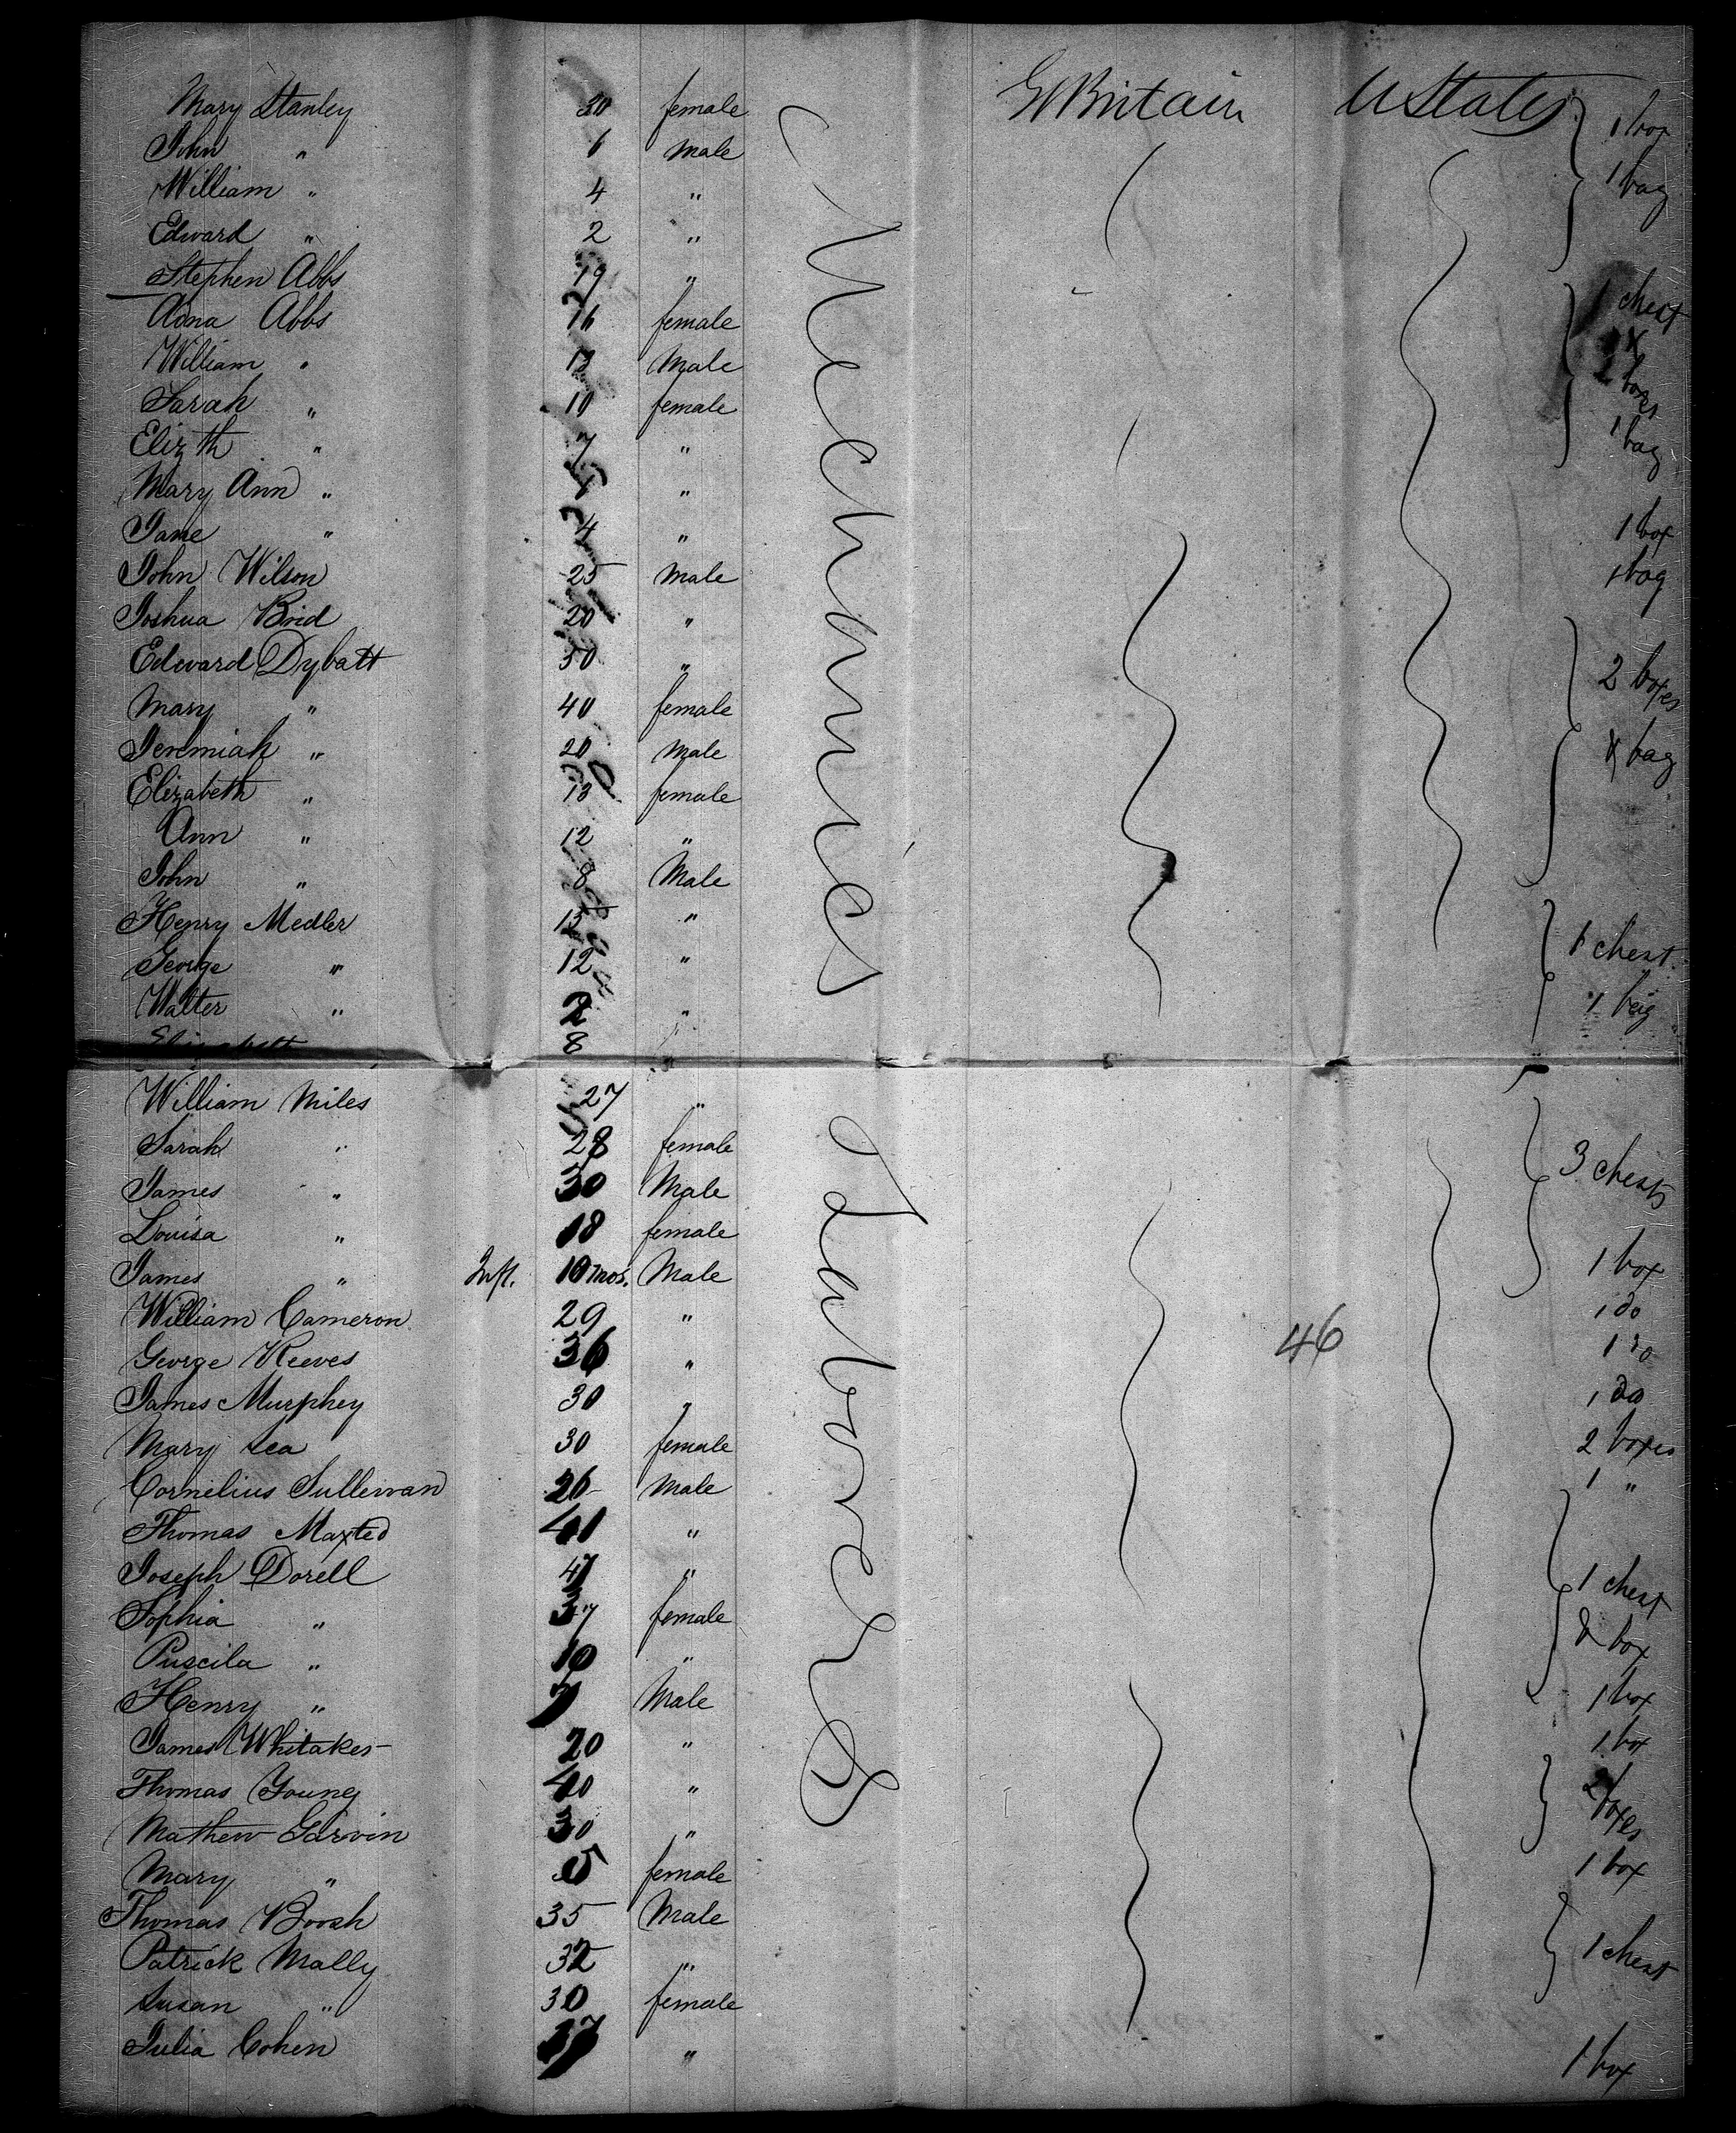 Mary Stanley 30 female Gt Britain U States 1 box
John " 6 Male
William " 4 " 1 bag
Edward " 2 "
Stephen Abbs 19 "
Anna Abbs 16 female 1 chest
William " 13 Male &
Sarah " 10 female 2 boxes
Elizth " 7 " 1 bag
Mary Ann " "
Jane " 4 " 1 box
John Wilson 25 Male 1 bag
Joshua Brid 20 "
Edward Dybatt 50 " 2 boxes
Mary " 40 female
Jeremiah " 20 Male & bag
Elizabeth " 13 female
Ann " 12 "
John " 8 Male
Henry Medler 15 "
George " 12 " 1 chest
Walter " 2 " 1 bag
Elizabeth 8 "
Mechanics
William Miles 27 "
Sarah " 28 female 3 chests
James " 30 Male
Louisa " 18 female
James " Inft. 10 mos. Male 1 box
William Cameron 29 " 1 do
George Reeves 36 " 46 1 do
James Murphey 30 " 1 do
Mary Lea 30 female 2 boxes
Cornelius Sullewan 26 Male 1 "
Thomas Maxted 41 "
Joseph Dorell 47 " 1 chest
Sophia " 37 female & box
Puscila " 10 "
Henry " 7 Male 1 box
James Whitaker 20 " 1 box
Thomas Young 40 " 2 boxes
Mathew Garvin 30 "
Mary " female 1 box
Thomas Boosh 35 Male
Patrick Mally 32 " 1 chest
Susan " 30 female
Julia Cohen " 1 box
& Laborers